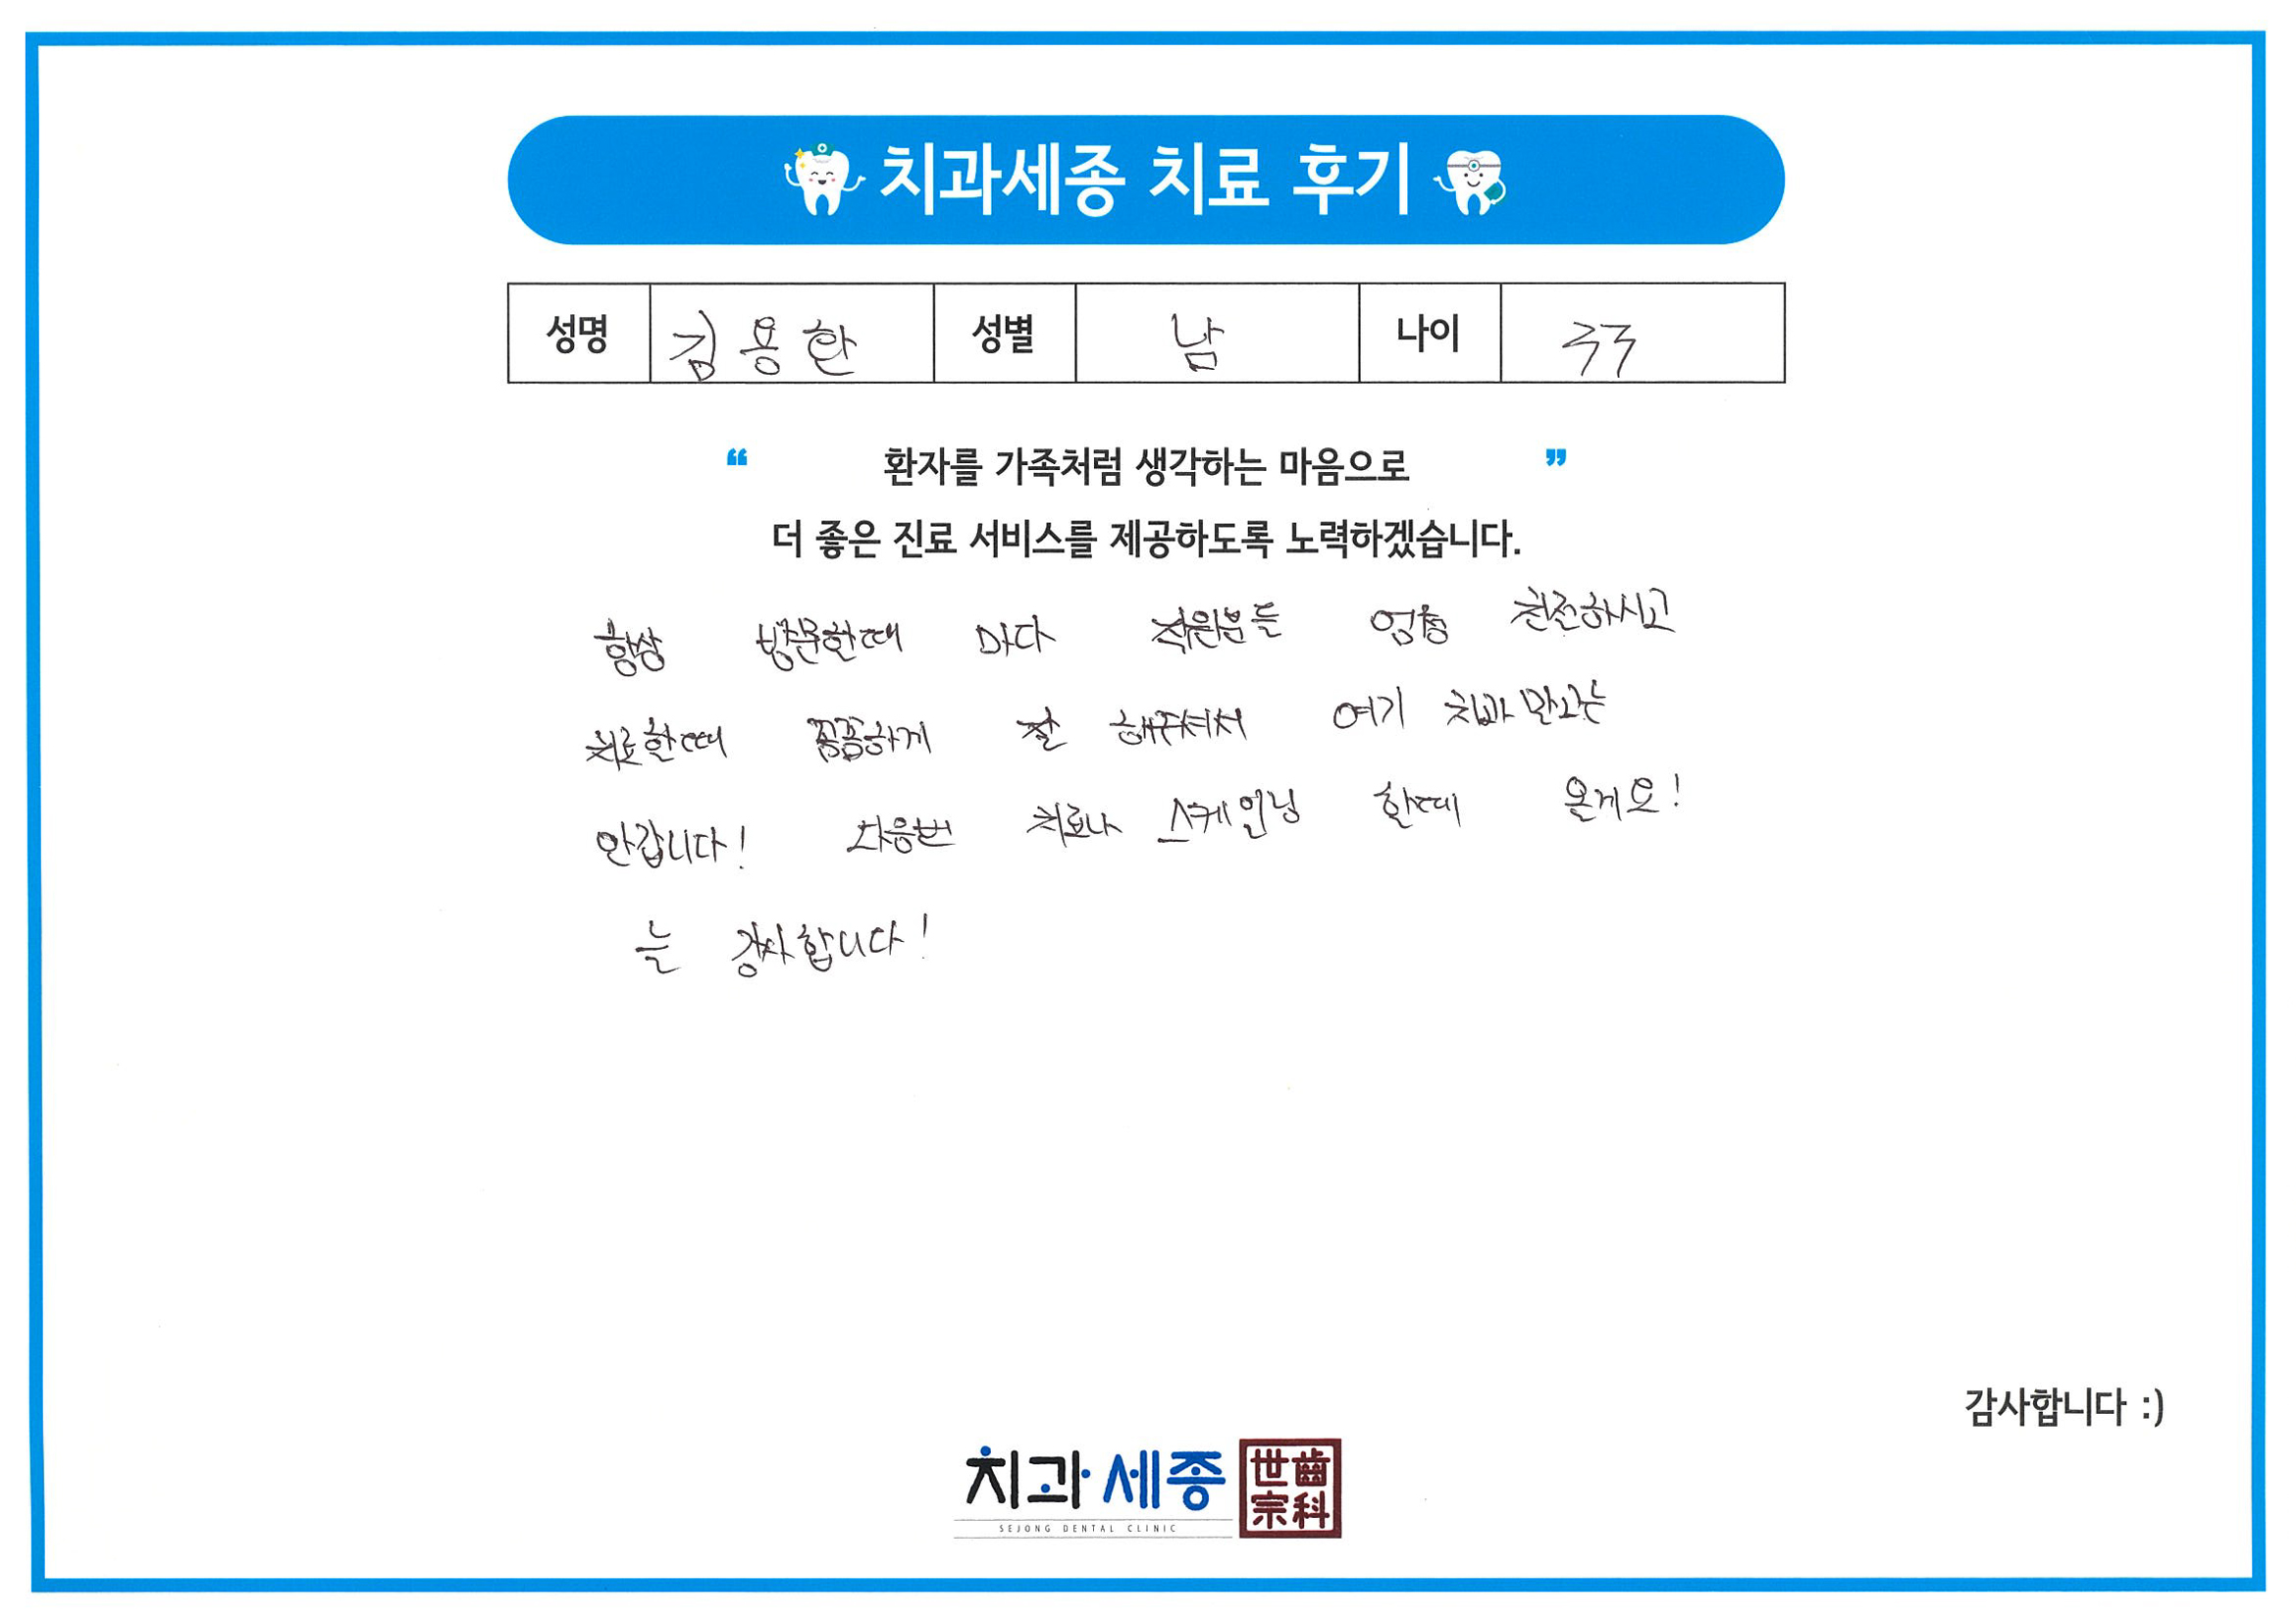 치과세종 치료 후기
성명 김용한 성별 남 나이 33
“ 환자를 가족처럼 생각하는 마음으로 ”
더 좋은 진료 서비스를 제공하도록 노력하겠습니다.
항상 방문할때 마다 직원분들 엄청 친절하시고
치료할때 꼼꼼하게 잘 해주셔서 여기 치과 말고는
안갑니다! 다음번 치료나 스케일닝 할때 올게요!
늘 감사합니다!
감사합니다 :)
치과세종 世齒
宗科
SEJONG DENTAL CLINIC